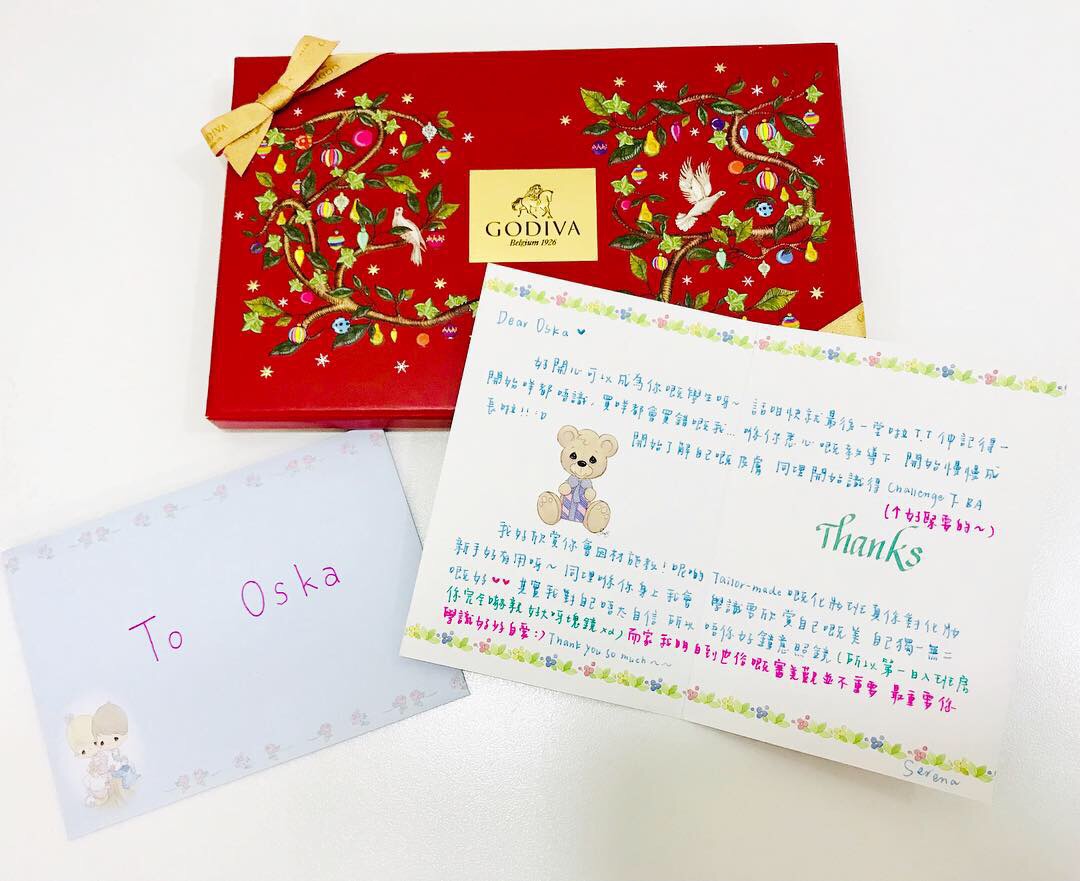 GODIVA
GODIVA
Belgium 1926
To Oska
Dear Oska ♥
好開心可以成為你嘅學生呀~ 話咁快就最後一堂啦T.T 仲記得一
開始咩都唔識，買咩都會買錯嘅我... 喺你悉心嘅教導下 開始慢慢成
長啦!! :D
開始了解自己嘅皮膚 同埋開始識得 Challenge 下 BA
(↑好緊要的~)
Thanks
我好欣賞你會因材施教！呢啲 Tailor-made 嘅化妝班真係對化妝
新手好有用呀~ 同埋喺你身上我會 學識要欣賞自己嘅美 自己獨一無二
嘅好 ♥♥ 其實我對自己唔太自信 所以 唔係好鍾意照鏡 (所以第一日入班房
你完全嚇親 好大呀塊鏡 xd) 而家我明白到他你嘅審美觀並不重要 最重要你
學識好好自愛 :) Thank you so much ~~
Serena